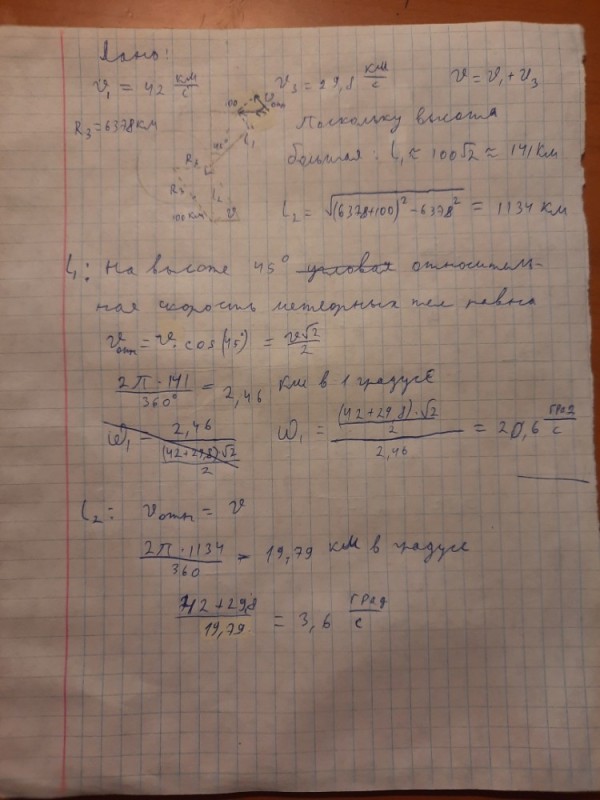 Дано:
v₁ = 42 км/с
v₃ = 29,8 км/с
v = v₁ + v₃
R₃ = 6378км
100
vотн
45°
l₁
R₃
R₃
l₂
100км
v
Поскольку высота
большая: l₁ ≈ 100√2 ≈ 141 км
l₂ = √((6378+100)² - 6378²) = 1134 км
l₁: На высоте 45° угловая относитель-
ная скорость метеорных тел равна
vотн = v · cos(45°) = v√2/2
2π · 141/360° = 2,46 км в 1 градусе
ω₁ = 2,46/((42+29,8)√2/2)
ω₁ = ((42+29,8)·√2/2)/2,46 = 20,6 град/с
l₂: vотн = v
2π · 1134/360 = 19,79 км в градусе
42 + 29,8/19,79 = 3,6 град/с